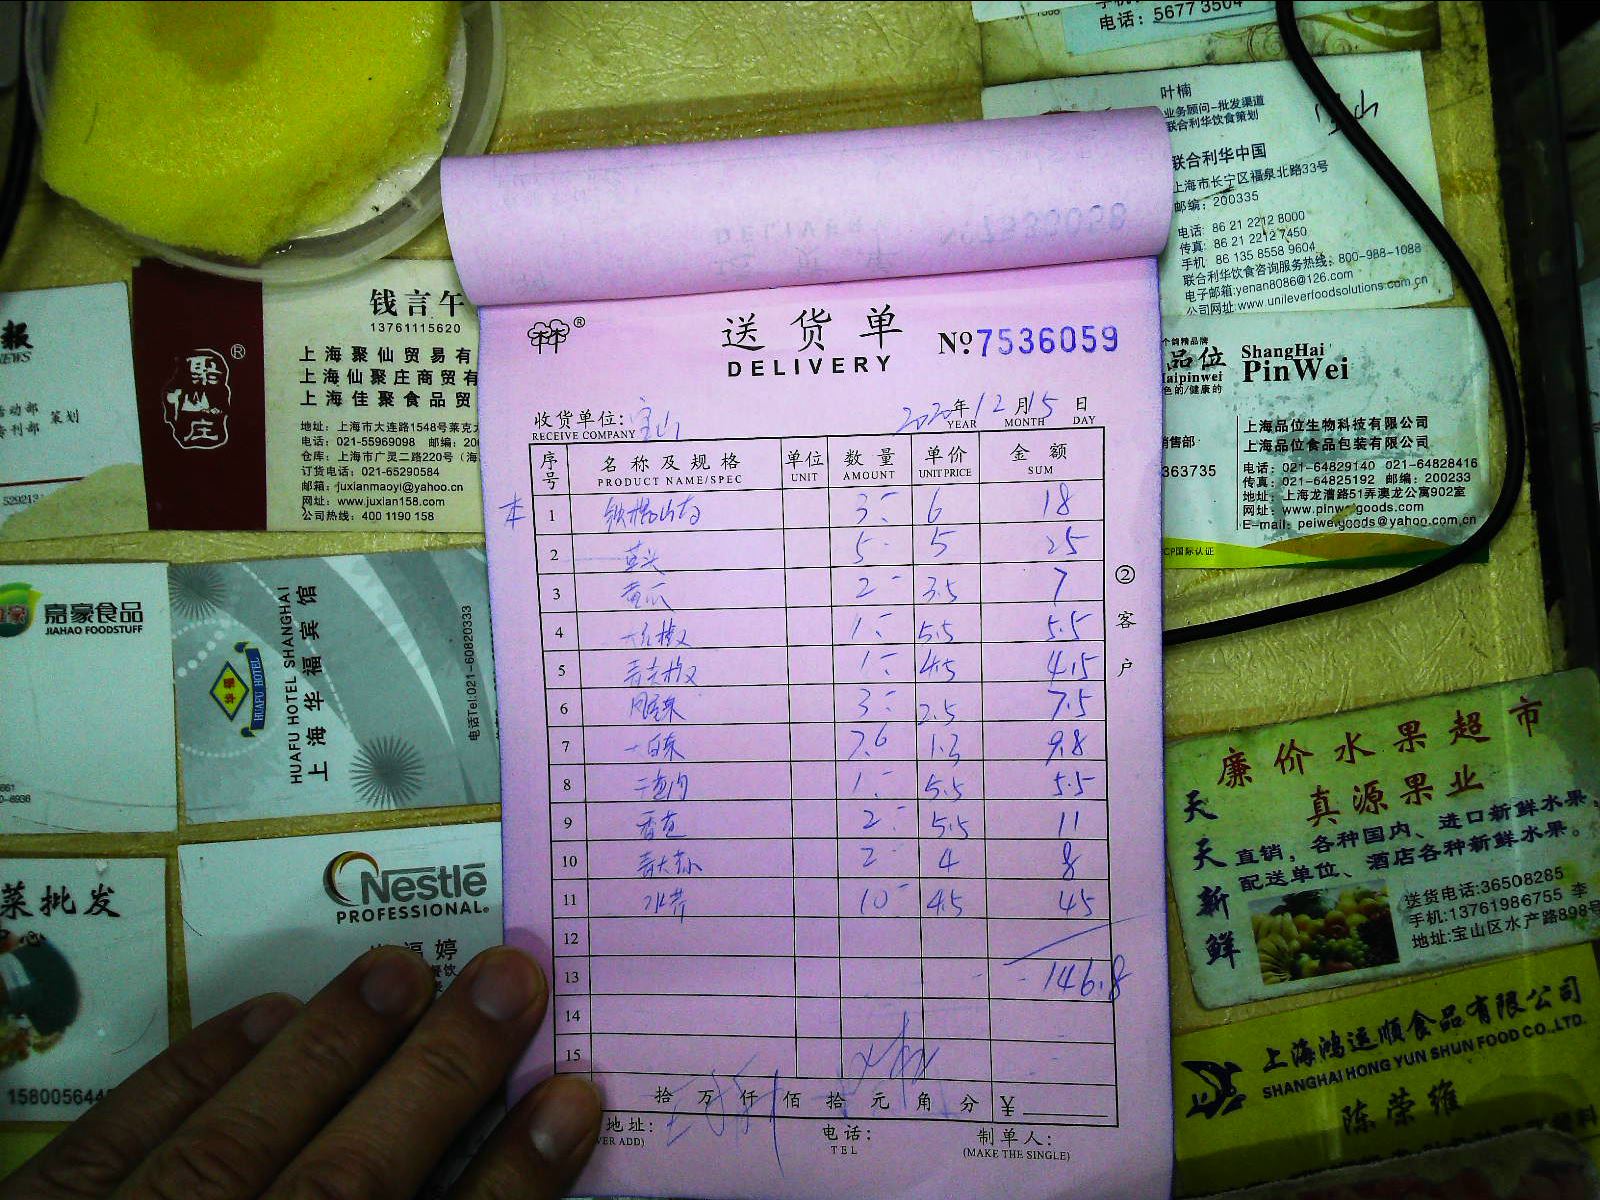 电话：5677 3504
叶楠
业务顾问-批发渠道
联合利华饮食策划
联合利华中国
上海市长宁区福泉北路33号
邮编：200335
电话: 86 21 2212 8000
传真: 86 21 2212 7450
手机 86 135 8558 9604
联合利华饮食咨询服务热线：800-988-1088
电子邮箱:yenan8086@126.com
公司网址:www.unileverfoodsolutions.com.cn
宝山
报
NEWS
活动部 策划
专利部
钱言午
13761115620
聚仙庄®
上海聚仙贸易有
上海仙聚庄商贸有
上海佳聚食品贸
地址：上海市大连路1548号莱克
电话：021-55969098 邮编：20
仓库：上海市广灵二路220号（海
订货电话：021-65290584
邮箱：juxianmaoyi@yahoo.cn
网址：www.juxian158.com
公司热线：400 1190 158
品位
Haipinwei
ShangHai
PinWei
上海品位生物科技有限公司
上海品位食品包装有限公司
销售部
363735
电话：021-64829140 021-64828416
传真：021-64825192 邮编：200233
地址：上海龙漕路51弄澳龙公寓902室
网址：www.pinweigoods.com
E-mail：peiweigoods@yahoo.com.cn
CP国际认证
®
送货单
DELIVERY
No.7536059
收货单位: 宝山
RECEIVE COMPANY
2020年12月15日
YEAR MONTH DAY
序号 名称及规格 单位 数量 单价 金额
PRODUCT NAME/SPEC UNIT AMOUNT UNIT PRICE SUM
1 铁棍山药 3 6 18
2 草头 5 5 25
3 黄瓜 2 3.5 7
4 1 5.5 5.5
5 1 4.5 4.5
6 3 2.5 7.5
7 7.6 1.3 9.8
8 1 5.5 5.5
9 香菇 2 5.5 11
10 2 4 8
11 水芹 10 4.5 45
12
13 146.8
14
15
拾万仟佰拾元角分 ¥
地址:
电话:
TEL
制单人:
(MAKE THE SINGLE)
②客户
嘉豪食品
JIAHAO FOODSTUFF
HUAFU HOTEL SHANGHAI
上海华福宾馆
华福
HUAFU HOTEL
电话Tel:021-60820333
菜批发
Nestlé
PROFESSIONAL.
福婷
廉价水果超市
真源果业
天天新鲜
直销，各种国内、进口新鲜水果，
配送单位、酒店各种新鲜水果。
送货电话:36508285
手机:13761986755 李
地址:宝山区水产路898号
上海鸿运顺食品有限公司
SHANGHAI HONG YUN SHUN FOOD CO.,LTD.
陈荣维